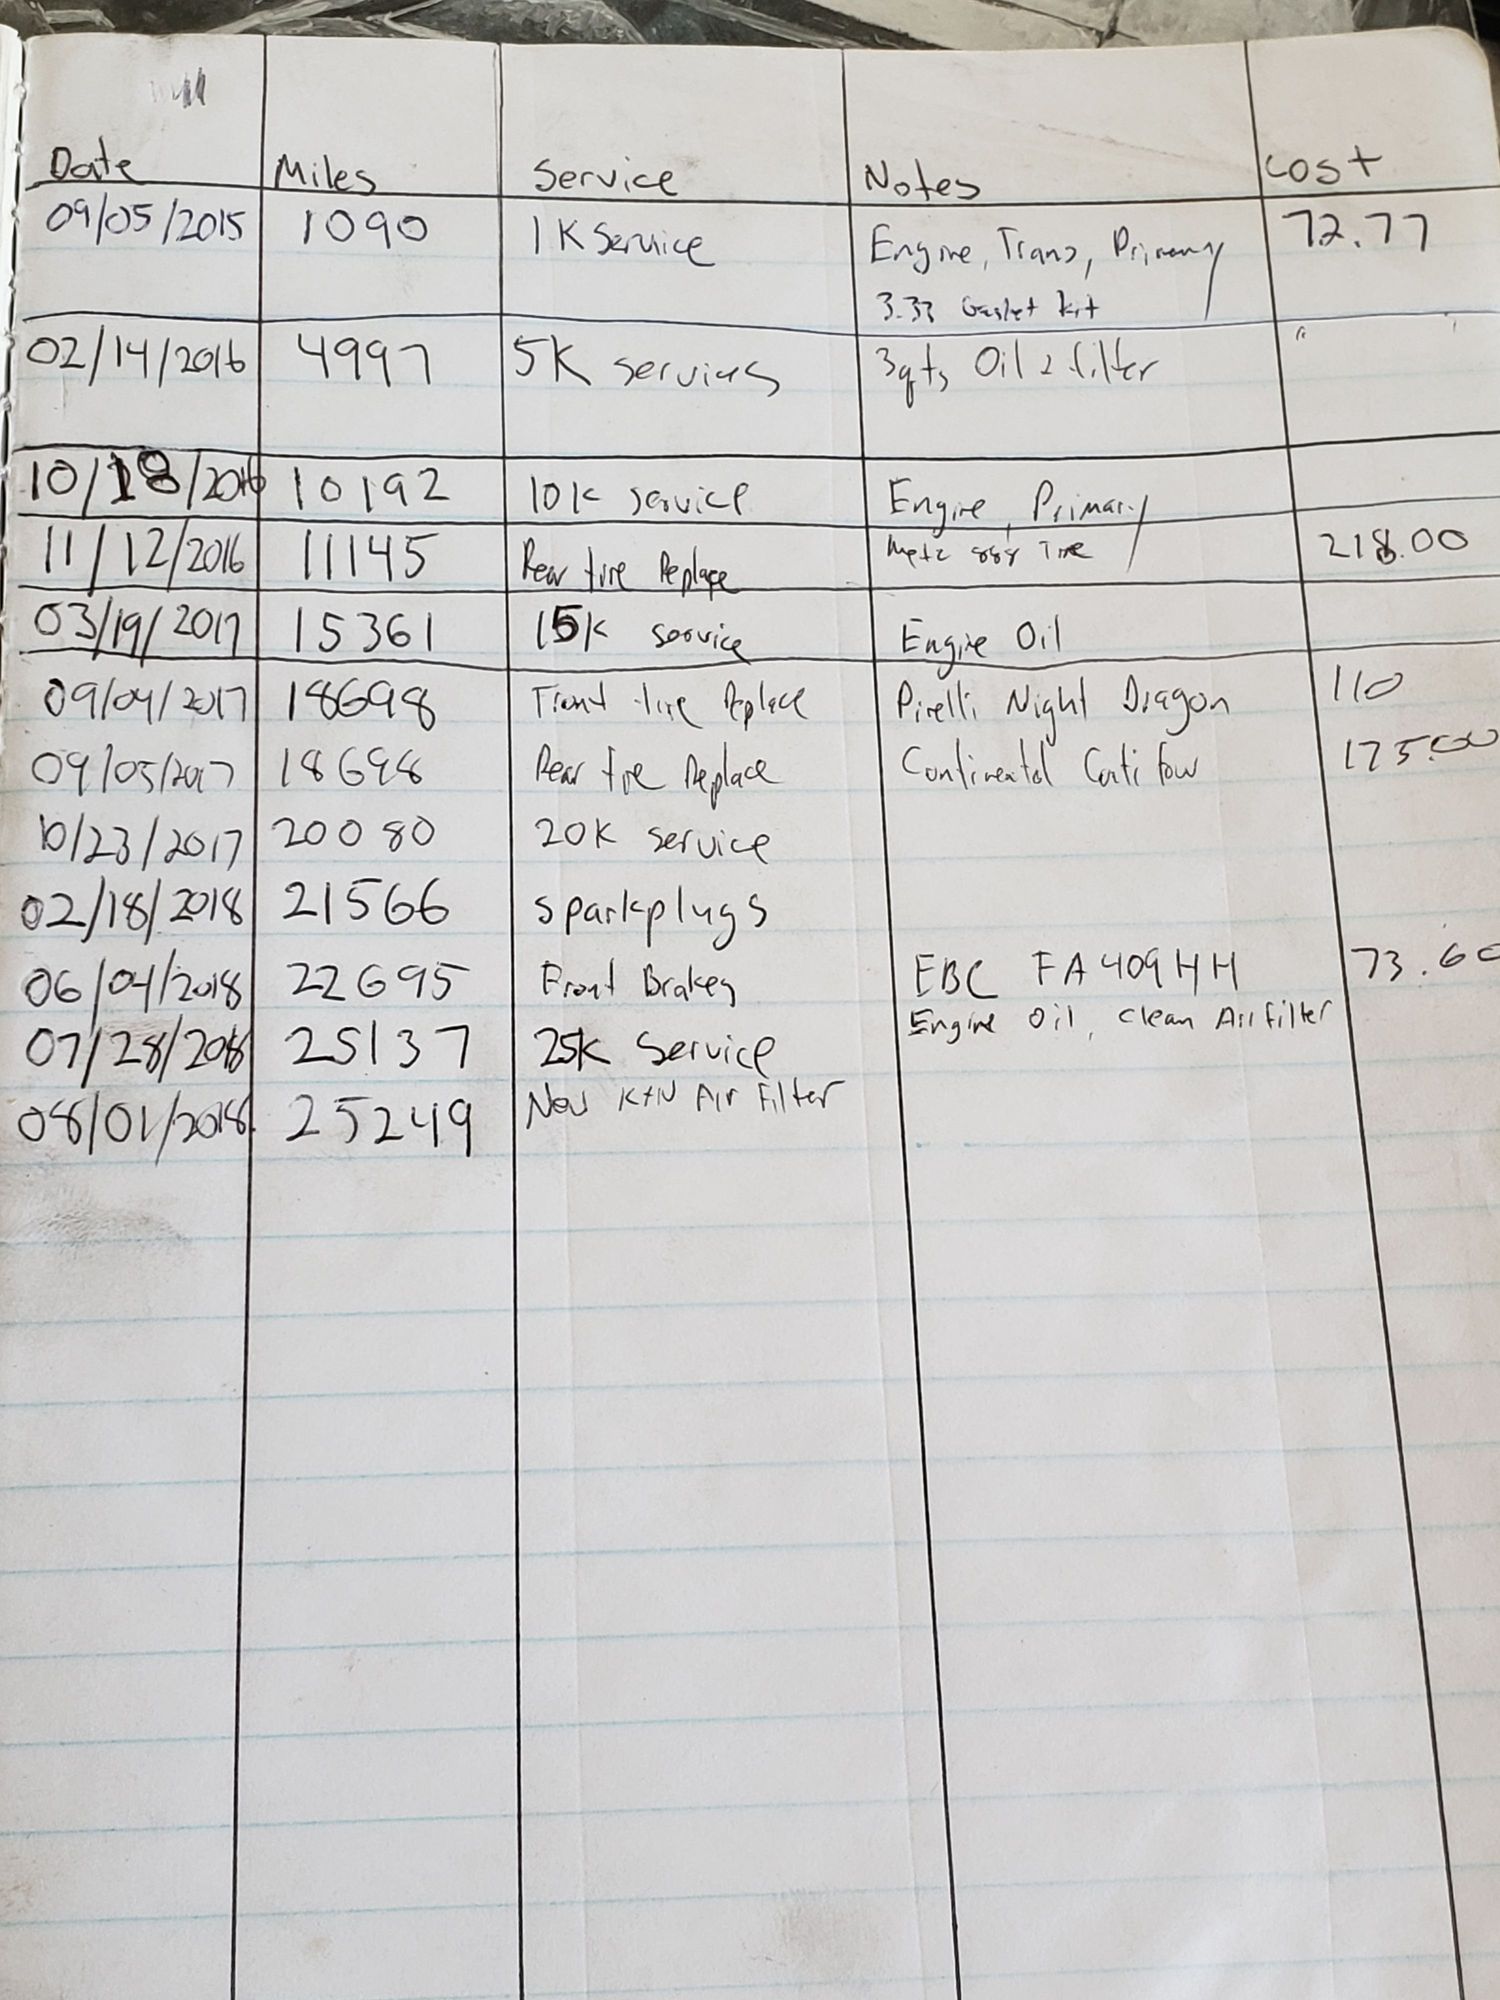 Date Miles Service Notes Cost
09/05/2015 1090 1K Service Engine, Trans, Primary 72.77
3.33 Gasket kit
02/14/2016 4997 5K services 3qts Oil & filter "
10/18/2016 10192 10K service Engine, Primary
11/12/2016 11145 Rear tire Replace Metz 888 Tire 218.00
03/19/2017 15361 15K service Engine Oil
09/04/2017 18698 Front tire Replace Pirelli Night Dragon 110
09/05/2017 18698 Rear tire Replace Continental Conti 175.00
10/23/2017 20080 20K service
02/18/2018 21566 sparkplugs
06/04/2018 22695 Front Brakes EBC FA409HH 73.60
07/28/2018 25137 25K Service Engine Oil, Clean Air Filter
08/01/2018 25249 New K+N Air Filter